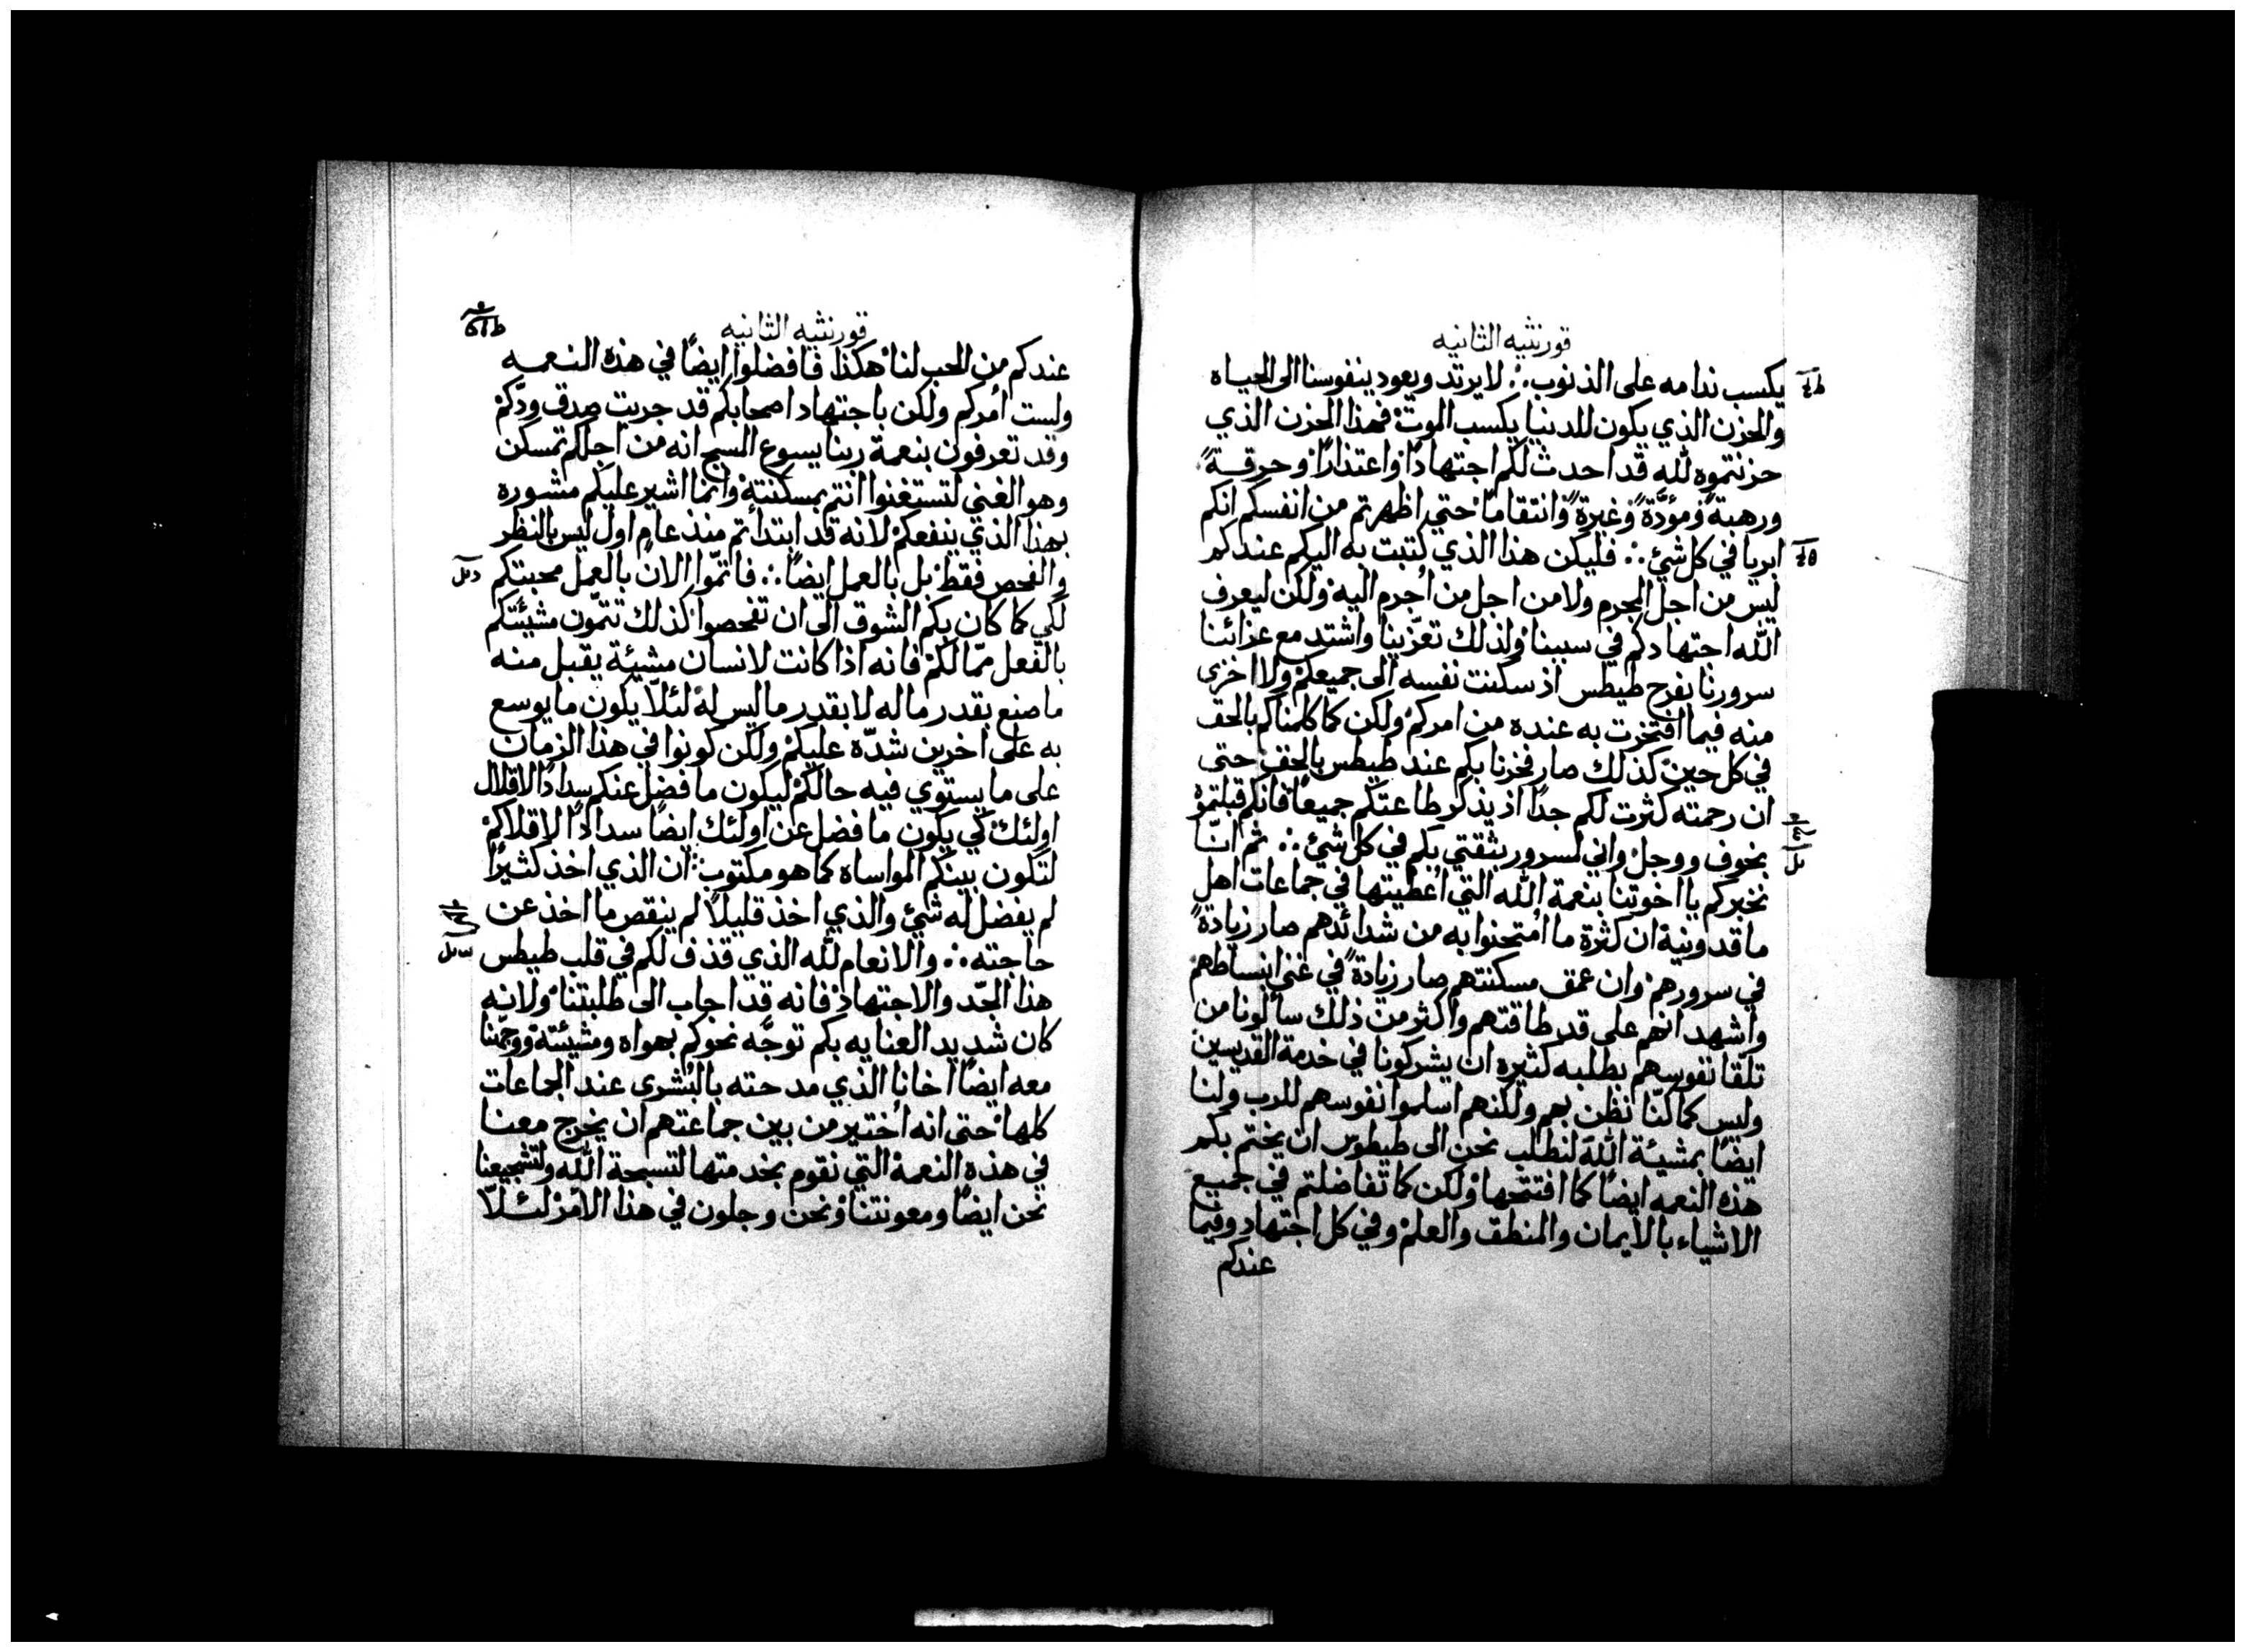 قورنثيه الثانيه
يكسب ندامه على الذنوب ∴ لا يرتد ويعود بنفوسنا الى الحياه
والحزن الذي يكون للدنيا يكسب الموت فهذا الحزن الذي
حزنتموه لله قد احدث لكم اجتهادًا واعتذارًا وحرقــةً
ورهبةً ومؤدَّةً وغيرةً وانتقامًا حتي اظهرتم من انفسكم انكم
ابريا في كل شئ ∴ فليكن هذا الذي كتبت به اليكم عندكم
ليس من اجل المجرم ولا من اجل من اُجرم اليه ولكن ليعرف
الله اجتهادكم في سببنا ولذلك تعزّينا واشتد مع عزائنا
سرورنا بفرح طيطس اذ سكنت نفسه الى جميعكم ولا اخزى
منه فيما افتخرت به عنده من امركم ولكن كما كلمناكم بالحق
في كل حين كذلك صار فخرنا بكم عند طيطس بالحق حتى
ان رحمته كثرت لكم جدًا اذ يذكر طاعتكم جميعًا فانكم قبلتموهُ
بخوف ووجل واني لمسرور بثقتي بكم في كل شئ ∴ ثم انّا
نخبركم يا اخوتنا بنعمة الله التي اُعطيتها في جماعات اهل
ماقدونية ان كثرة ما امتحنوا به من شدائدهم صار زيادةً
في سرورهم وان عمق مسكنتهم صار زيادةً في غني انبساطهم
واشهد انهم على قدر طاقتهم واكثر من ذلك سألونا من
تلقا نفوسهم بطلبه كثيره ان يشركونا في خدمة القديسين
وليس كما كنّا نظن بهم ولكنهم اسلموا نفوسهم للرب ولنا
ايضًا بمشيـة الله لنطلب نحن الى طيطوس ان يختم بكم
هذه النعمه ايضًا كما افتتحها ولكن كما تفاضلتم في جميع
الاشياء بالايمان والمنطق والعلم وفي كل اجتهاد وفيما
عندكم
قورنثيه الثانيه
عندكم من الحب لنا هكذا فافضلوا ايضًا في هذه النعمــه
ولست امُركم ولكن باجتهاد اصحابكم قد جربت صدق ودّكم
وقد تعرفون بنعمة ربنا يسوع المسيح انه من اجلكم تمسكن
وهو الغني لتستغنوا انتم بمسكنته وانما اشير عليكم مشوره
بهذا الذي ينفعكم لانه قد ابتدأتم منذ عام اول ليس بالنظر
والفحص فقط بل بالعمل ايضًا ∴ فاتمّوا الان بالعمل محبتكم
لكي كما كان بكم الشوق الى ان تفحصوا كذلك تتمّون مشيئتكم
بالفعل ممّا لكم فانه اذا كانت لانسان مشيئة يقبل منــه
ما صنع بقدر ما له لا بقدر ما ليس له لئلّا يكون ما يوسع
به على اخرين شدّه عليكم ولكن كونوا في هذا الزمان
على ما يستوي فيه حالكم ليكون ما فضل عنكم سدادًا لاقلال
اولئك كي يكون ما فضل عن اولئك ايضًا سدادًا لاقلالكم
لتكون بينكم المواساه كما هو مكتوب ∴ ان الذي اخذ كثيرًا
لم يفضل له شئ والذي اخذ قليلًا لم ينقص ما اخذ عن
حاجته ∴ والانعام لله الذي قذف لكم في قلب طيطس
هذا الجّد والاجتهاد فانه قد اجاب الى طلبتنا ولانه
كان شديد العنايه بكم توجّه نحوكم بهواه ومشيئته ووجّهنا
معه ايضًا اخانا الذي مدحته بالبُشرى عند الجماعات
كلها حتى انه اُختير من بين جماعتهم ان يخرج معنـا
في هذه النعمة التي نقوم بخدمتها لتسبحة الله ولتشجيعنا
نحن ايضًا ومعونتنا ونحن وجلون في هذا الامر لئــلّا